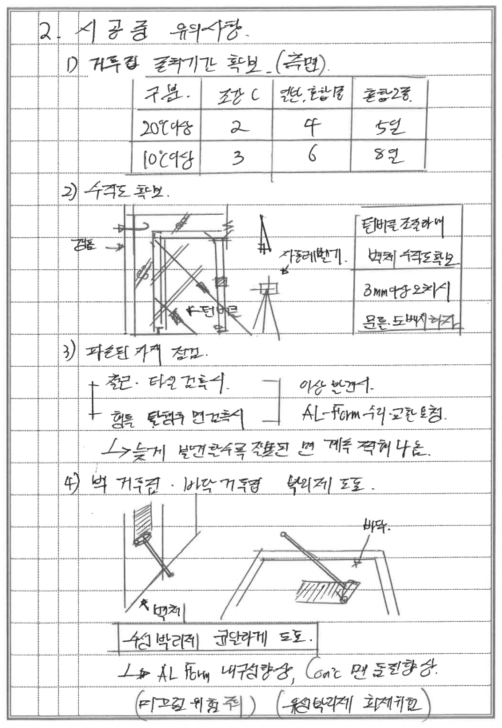 2. 시공중 유의사항.
1) 거푸집 존치기간 확보. (측면).
구분. 조강 C 일반, 혼합1종 혼합2종.
20℃이상 2 4 5일
10℃이상 3 6 8일
2) 수직도 확보.
턴버클 조절하여
벽체 수직도 확보
사형레벨기.
3mm이상 오차시
턴버클
문틀. 도배지 하자
3) 파손된 자재 점검.
출근. 타설 검측시. 이상 발견시.
형틀 탈형후 면 검측시 AL-Form 수리·교환 요청.
↳ 늦게 발견할수록 잘못된 면 계속 찍혀 나옴.
4) 벽 거푸집. 바닥 거푸집 박리제 도포.
바닥.
벽체
수성박리제 균일하게 도포.
↳ AL Form 내구성 향상, Con'c 면 품질향상.
(미끄럼 위험 주의) (유성박리제 화재위험)